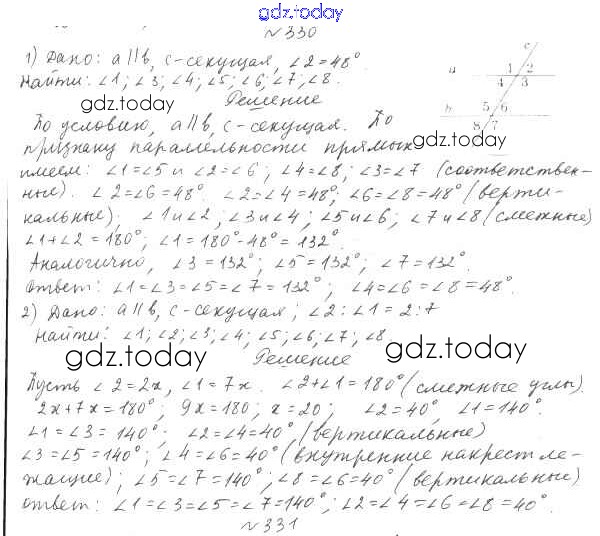 gdz.today
№330
1) Дано: a||b, c-секущая, ∠2=48°.
Найти: ∠1; ∠3; ∠4; ∠5; ∠6; ∠7; ∠8.
gdz.today Решение
По условию, a||b, c-секущая. По
gdz.today
признаку параллельности прямых
имеем: ∠1=∠5 и ∠2=∠6; ∠4=∠8; ∠3=∠7 (соответствен-
ные). ∠2=∠6=48°. ∠2=∠4=48°; ∠6=∠8=48° (верти-
кальные); ∠1 и ∠2; ∠3 и ∠4; ∠5 и ∠6; ∠7 и ∠8 (смежные)
∠1+∠2=180°; ∠1=180°-48°=132°.
Аналогично, ∠3=132°; ∠5=132°; ∠7=132°.
Ответ: ∠1=∠3=∠5=∠7=132°; ∠4=∠6=∠8=48°.
2) Дано: a||b, c-секущая; ∠2:∠1=2:7
Найти: ∠1; ∠2; ∠3; ∠4; ∠5; ∠6; ∠7; ∠8
gdz.today Решение gdz.today
Пусть ∠2=2x, ∠1=7x. ∠2+∠1=180° (смежные углы).
2x+7x=180°; 9x=180; x=20; ∠2=40°, ∠1=140°.
∠1=∠3=140°; ∠2=∠4=40° (вертикальные)
∠3=∠5=140°; ∠4=∠6=40° (внутренние накрест ле-
жащие); ∠5=∠7=140°; ∠8=∠6=40° (вертикальные)
Ответ: ∠1=∠3=∠5=∠7=140°; ∠2=∠4=∠6=∠8=40°.
№331
c
a 1 2
4 3
b 5 6
8 7